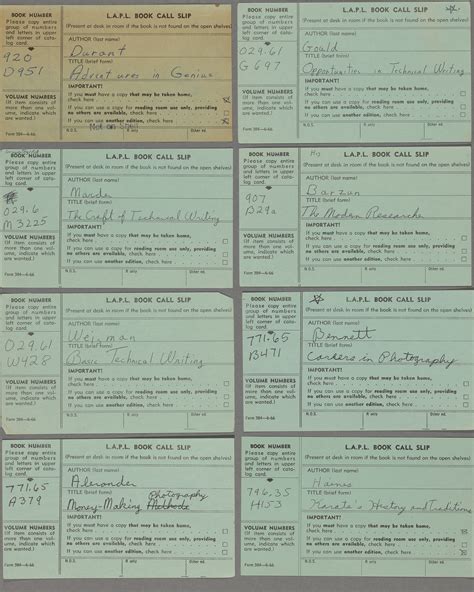 BOOK NUMBER
Please copy entire group of numbers and letters in upper left corner of catalog card.
920
D951
VOLUME NUMBERS
(If item consists of more than one volume, indicate which are wanted.)
Form 204—6-66
L.A.P.L. BOOK CALL SLIP
(Present at desk in room if the book is not found on the open shelves)
AUTHOR (last name)
Durant
TITLE (brief form)
Adventures in Genius
IMPORTANT!
If you must have a copy that may be taken home, check here
If you can use a copy for reading room use only, providing no others are available, check here
If you can use another edition, check here
Not on Shelf
BOOK NUMBER
Please copy entire group of numbers and letters in upper left corner of catalog card.
029.61
G697
VOLUME NUMBERS
(If item consists of more than one volume, indicate which are wanted.)
Form 204—6-66
L.A.P.L. BOOK CALL SLIP
(Present at desk in room if the book is not found on the open shelves)
AUTHOR (last name)
Gould
TITLE (brief form)
Opportunities in Technical Writing
IMPORTANT!
If you must have a copy that may be taken home, check here
If you can use a copy for reading room use only, providing no others are available, check here
If you can use another edition, check here
N.O.S.
R only
Other ed.
BOOK NUMBER
Please copy entire group of numbers and letters in upper left corner of catalog card.
029.6
M3225
VOLUME NUMBERS
(If item consists of more than one volume, indicate which are wanted.)
Form 204—6-66
L.A.P.L. BOOK CALL SLIP
(Present at desk in room if the book is not found on the open shelves)
AUTHOR (last name)
Marder
TITLE (brief form)
The Craft of Technical Writing
IMPORTANT!
If you must have a copy that may be taken home, check here
If you can use a copy for reading room use only, providing no others are available, check here
If you can use another edition, check here
N.O.S.
R only
Other ed.
BOOK NUMBER
Please copy entire group of numbers and letters in upper left corner of catalog card.
907
B29a
VOLUME NUMBERS
(If item consists of more than one volume, indicate which are wanted.)
Form 204—6-66
L.A.P.L. BOOK CALL SLIP
(Present at desk in room if the book is not found on the open shelves)
AUTHOR (last name)
Barzun
TITLE (brief form)
The Modern Researcher
IMPORTANT!
If you must have a copy that may be taken home, check here
If you can use a copy for reading room use only, providing no others are available, check here
If you can use another edition, check here
N.O.S.
R only
Other ed.
BOOK NUMBER
Please copy entire group of numbers and letters in upper left corner of catalog card.
029.61
W428
VOLUME NUMBERS
(If item consists of more than one volume, indicate which are wanted.)
Form 204—6-66
L.A.P.L. BOOK CALL SLIP
(Present at desk in room if the book is not found on the open shelves)
AUTHOR (last name)
Weisman
TITLE (brief form)
Basic Technical Writing
IMPORTANT!
If you must have a copy that may be taken home, check here
If you can use a copy for reading room use only, providing no others are available, check here
If you can use another edition, check here
N.O.S.
R only
Other ed.
BOOK NUMBER
Please copy entire group of numbers and letters in upper left corner of catalog card.
771.65
B471
VOLUME NUMBERS
(If item consists of more than one volume, indicate which are wanted.)
Form 204—6-66
L.A.P.L. BOOK CALL SLIP
(Present at desk in room if the book is not found on the open shelves)
AUTHOR (last name)
Bennett
TITLE (brief form)
Careers in Photography
IMPORTANT!
If you must have a copy that may be taken home, check here
If you can use a copy for reading room use only, providing no others are available, check here
If you can use another edition, check here
N.O.S.
R only
Other ed.
BOOK NUMBER
Please copy entire group of numbers and letters in upper left corner of catalog card.
771.65
A379
VOLUME NUMBERS
(If item consists of more than one volume, indicate which are wanted.)
L.A.P.L. BOOK CALL SLIP
(Present at desk in room if the book is not found on the open shelves)
AUTHOR (last name)
Alexander
TITLE (brief form)
Photography
Money-Making Methods
IMPORTANT!
If you must have a copy that may be taken home, check here
If you can use a copy for reading room use only, providing no others are available, check here
If you can use another edition, check here
N.O.S.
R only
Other ed.
BOOK NUMBER
Please copy entire group of numbers and letters in upper left corner of catalog card.
796.35
H153
VOLUME NUMBERS
(If item consists of more than one volume, indicate which are wanted.)
L.A.P.L. BOOK CALL SLIP
(Present at desk in room if the book is not found on the open shelves)
AUTHOR (last name)
Haines
TITLE (brief form)
Karate's History and Traditions
IMPORTANT!
If you must have a copy that may be taken home, check here
If you can use a copy for reading room use only, providing no others are available, check here
If you can use another edition, check here
N.O.S.
R only
Other ed.